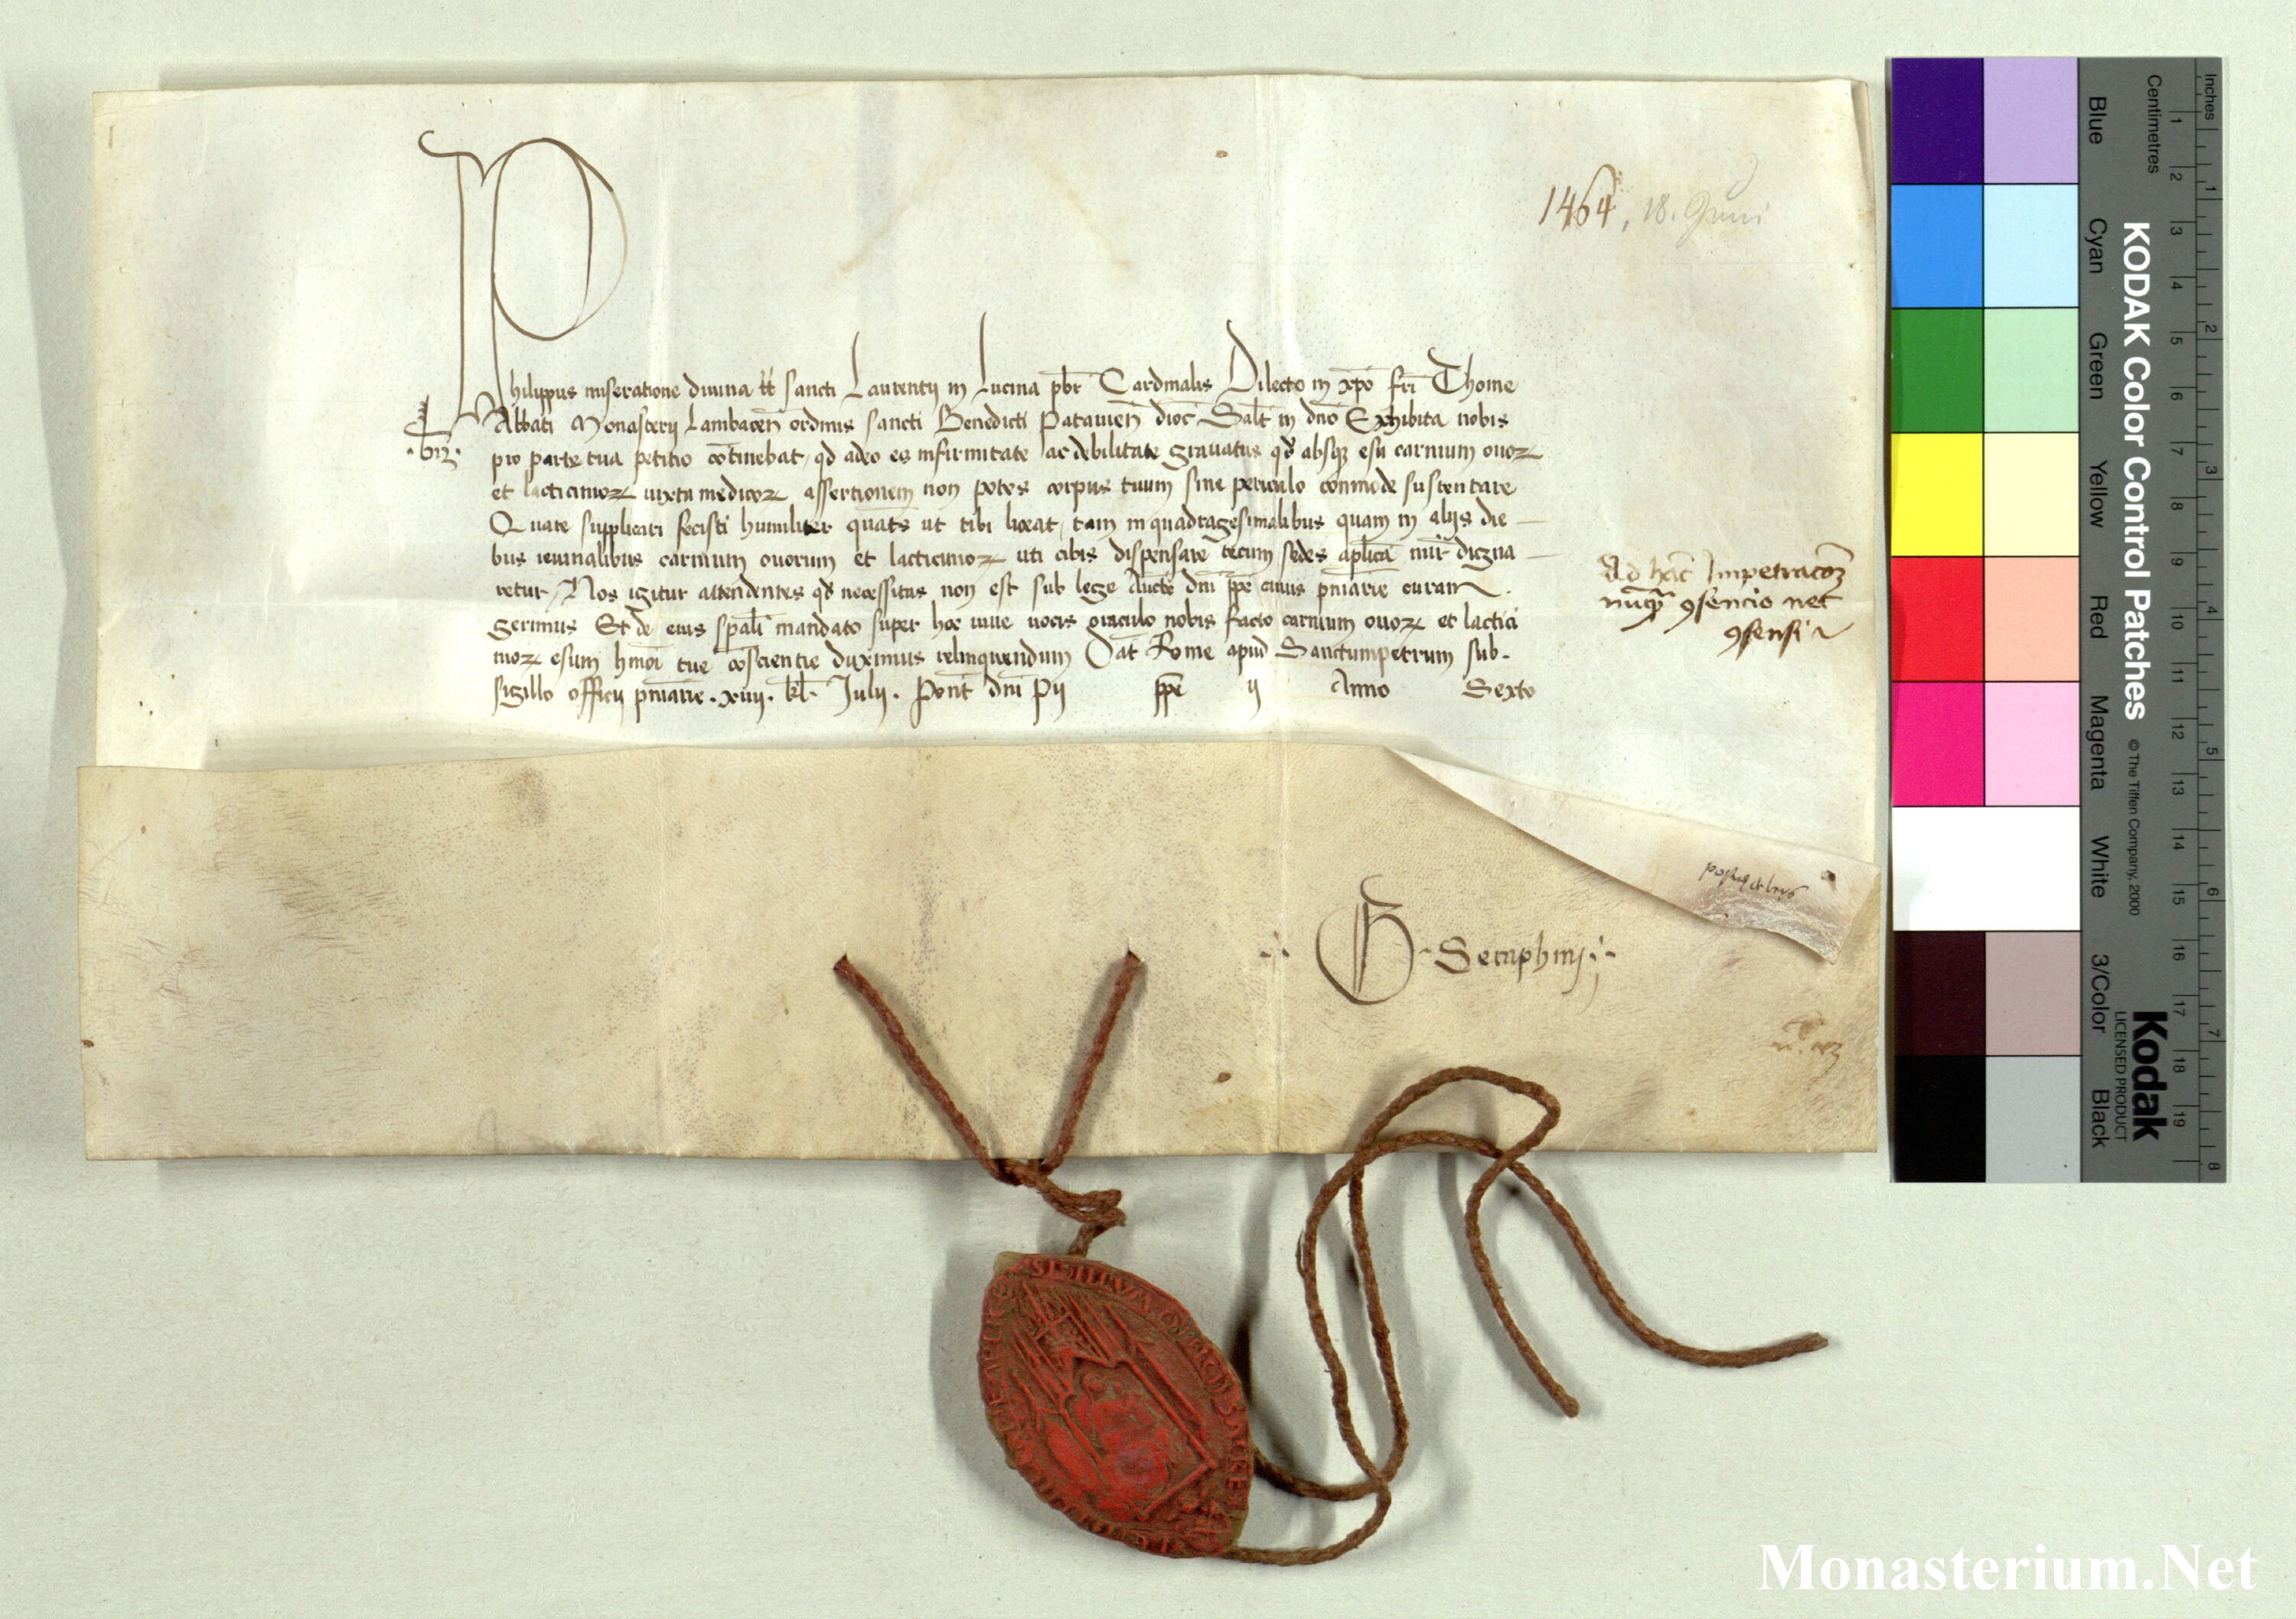 1464, 18. Juni
Philippus miseratione divina tt̄ sancti Laurentij in Lucina pb̄r Cardinalis Dilecto in xp̄o fr̄i Thome
Abbati Monasterij Lambacen̄ ordinis sancti Benedicti Patavien̄ dioc̄ Salt̄ in dn̄o Exhibita nobis
pro parte tua petitio cōtinebat, qd̄ adeo es infirmitate ac debilitate gravatus qd̄ absq̄ esu carnium ovoꝝ
et lacticinioꝝ iuxta medicoꝝ assertionem non potes corpus tuum sine periculo conmōde sustentare
Quare supplicari fecisti humiliter quat̄s ut tibi liceat, tam in quadragesimalibus quam in alijs die
bus ieiunalibus carnium ovorum et lacticinioꝝ uti cibis dispensare tecum sedes ap̄lica mīr digna
retur, Nos igitur attendentes qd̄ necessitas non est sub lege Auct̄e dn̄i pp̄e cuius pn̄iarie curam
gerimus Et de eius sp̄ali mandato super hoc vive vocis oraculo nobis facto carnium ovoꝝ et lactici
nioꝝ esum hm̄oi tue cōscientie duximus relinquendum Dat̄ Rome apud Sanctumpetrum sub
sigillo officij pn̄iarie . xiiij . kl̄ . Julij . Pont̄ dn̄i Pij pp̄e ij Anno Sexto
Ad hāc Impetracōꝫ
nūqꝫ ꝯsencio nec
ꝯsensi
G. Seraphinj
KODAK Color Control Patches
© The Tiffen Company, 2000
Kodak
LICENSED PRODUCT
Inches 1 2 3 4 5 6 7 8
Centimetres 1 2 3 4 5 6 7 8 9 10 11 12 13 14 15 16 17 18 19
Blue Cyan Green Yellow Red Magenta White 3/Color Black
Monasterium.Net